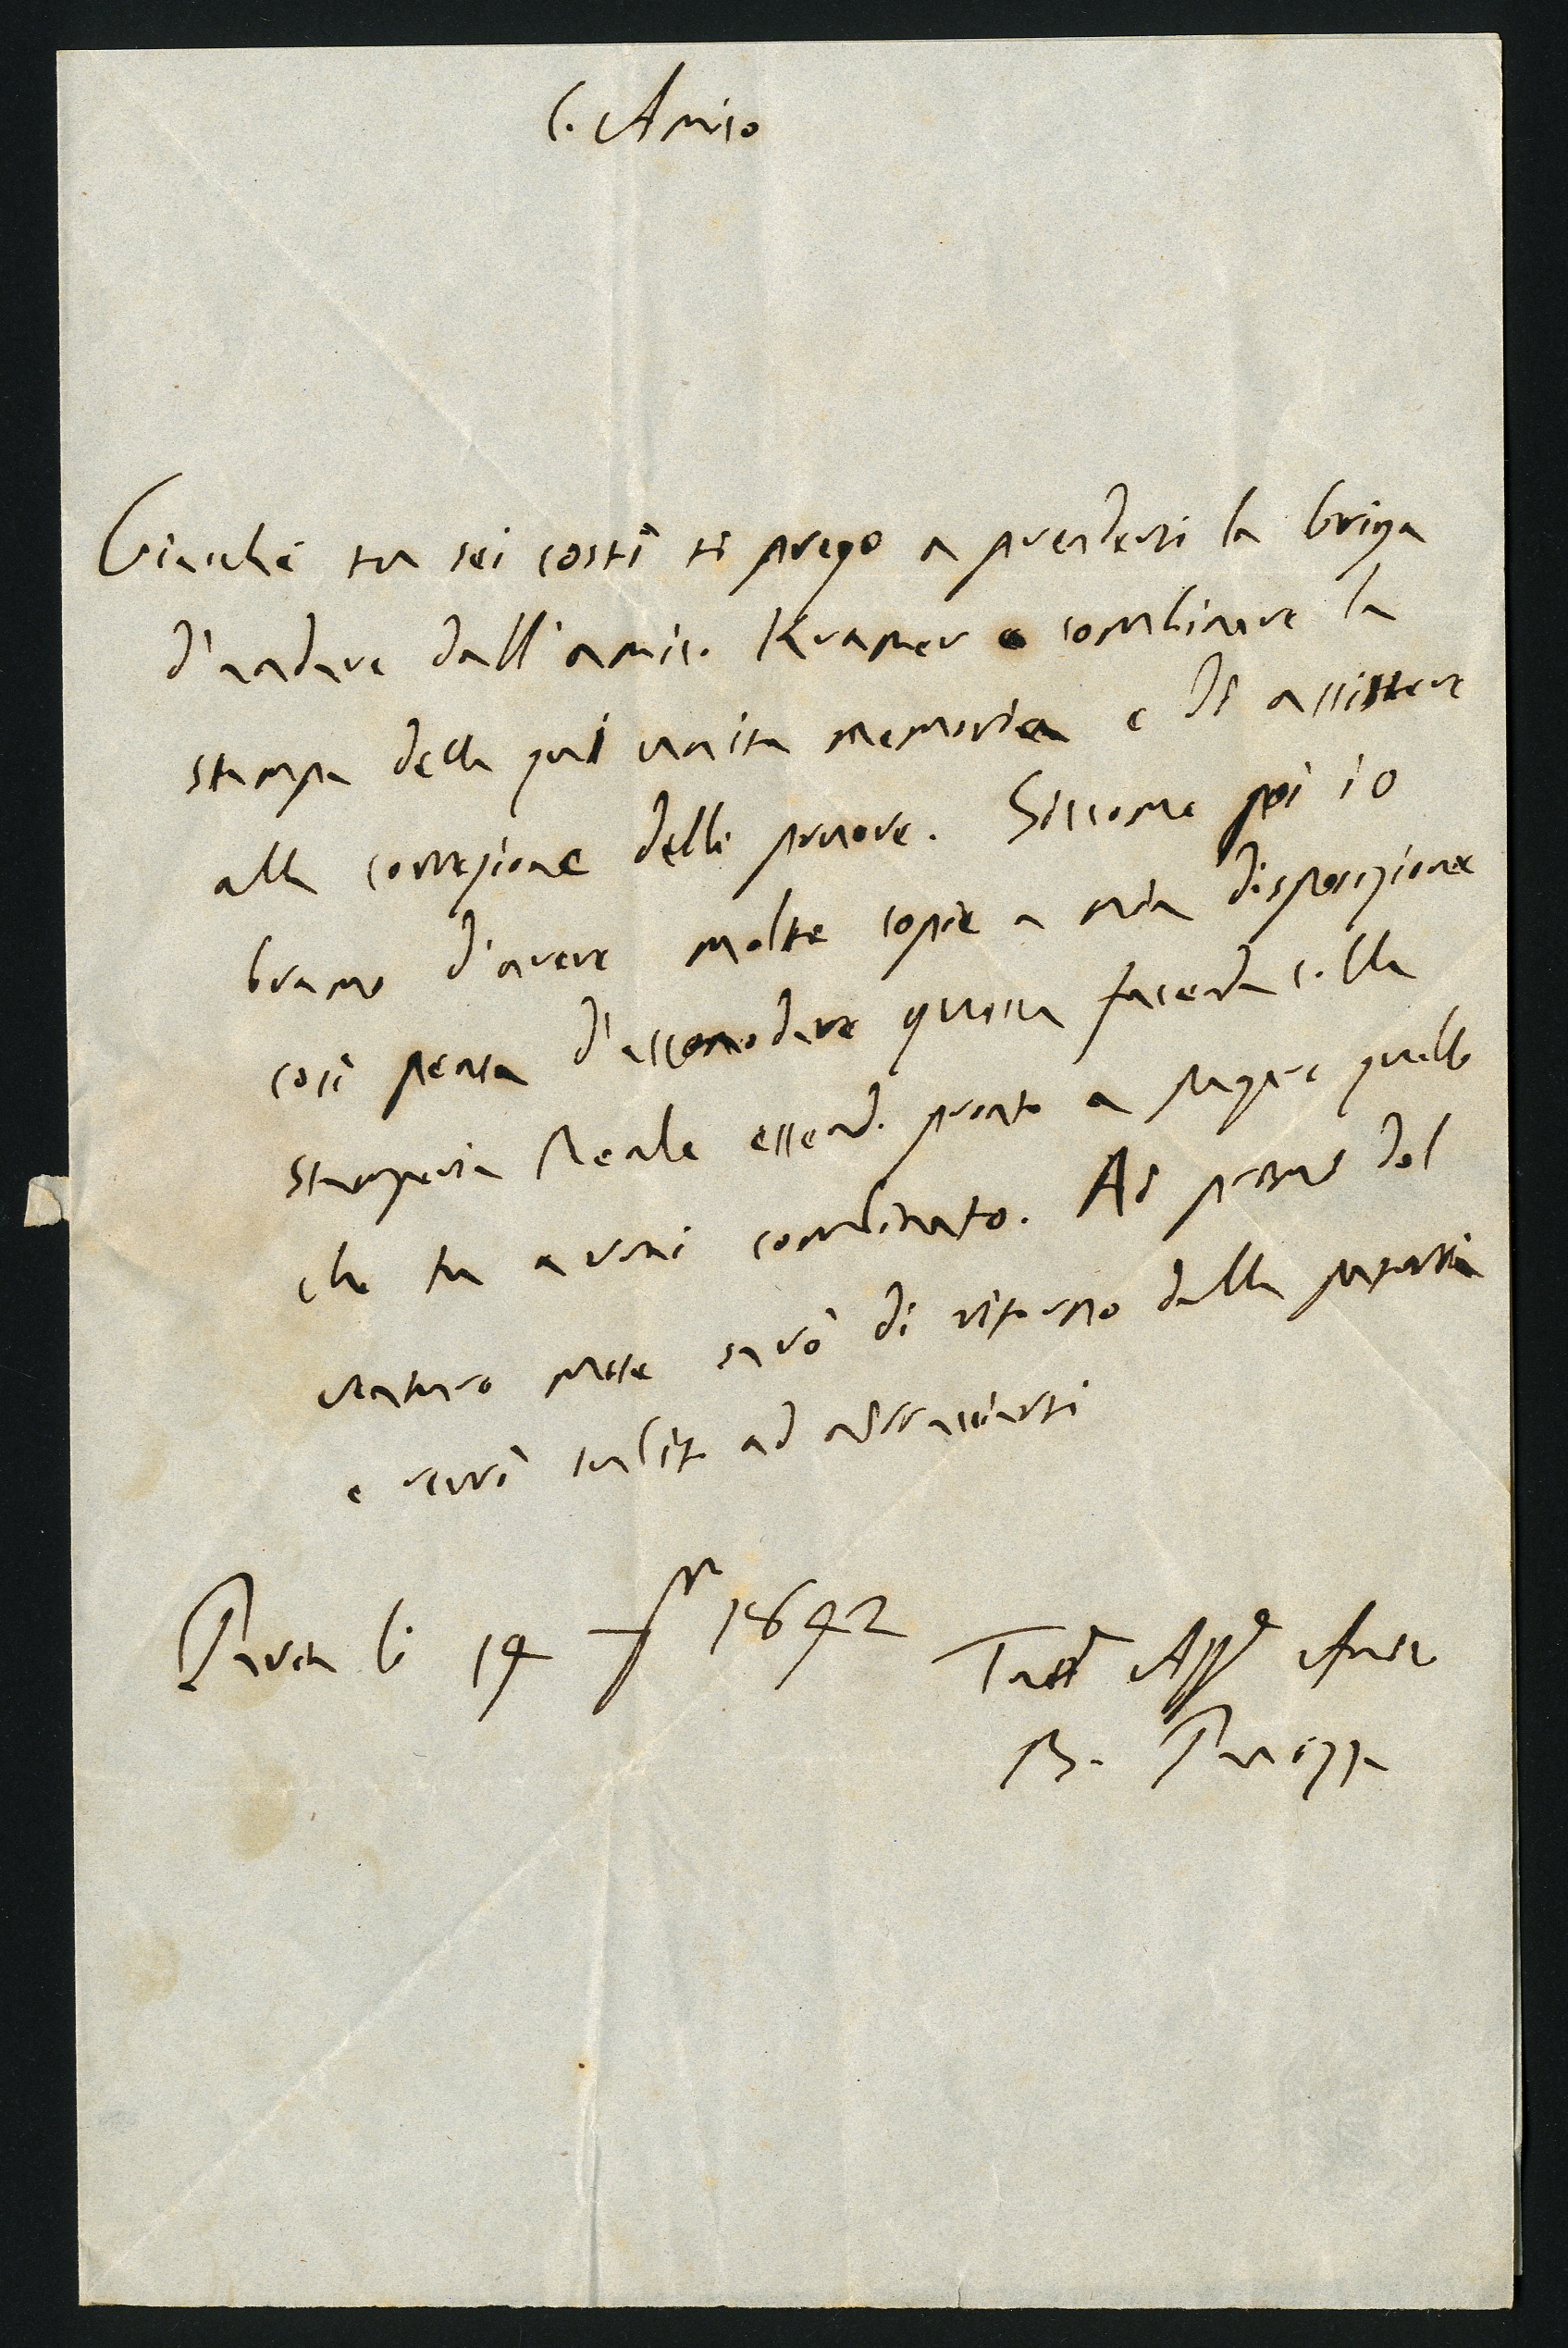 C. Amico
Giacché tu sei costì ti prego a prenderti la briga
d'andare dall'amico Kramer e combinare la
stampa della qui unita memoria e di assistere
alla correzione delle prove. Siccome poi io
bramo d'avere molte copie a mia disposizione
così pensa d'accomodare questa facenda colla
Stamperia Reale essendo pronto a pagare quello
che tu avrai combinato. Ai primi del
venturo mese sarò di ritorno dalla
e verrò subito ad abbracciarti
Pavia li 14 1842 Tutt Aff
B. Panizza